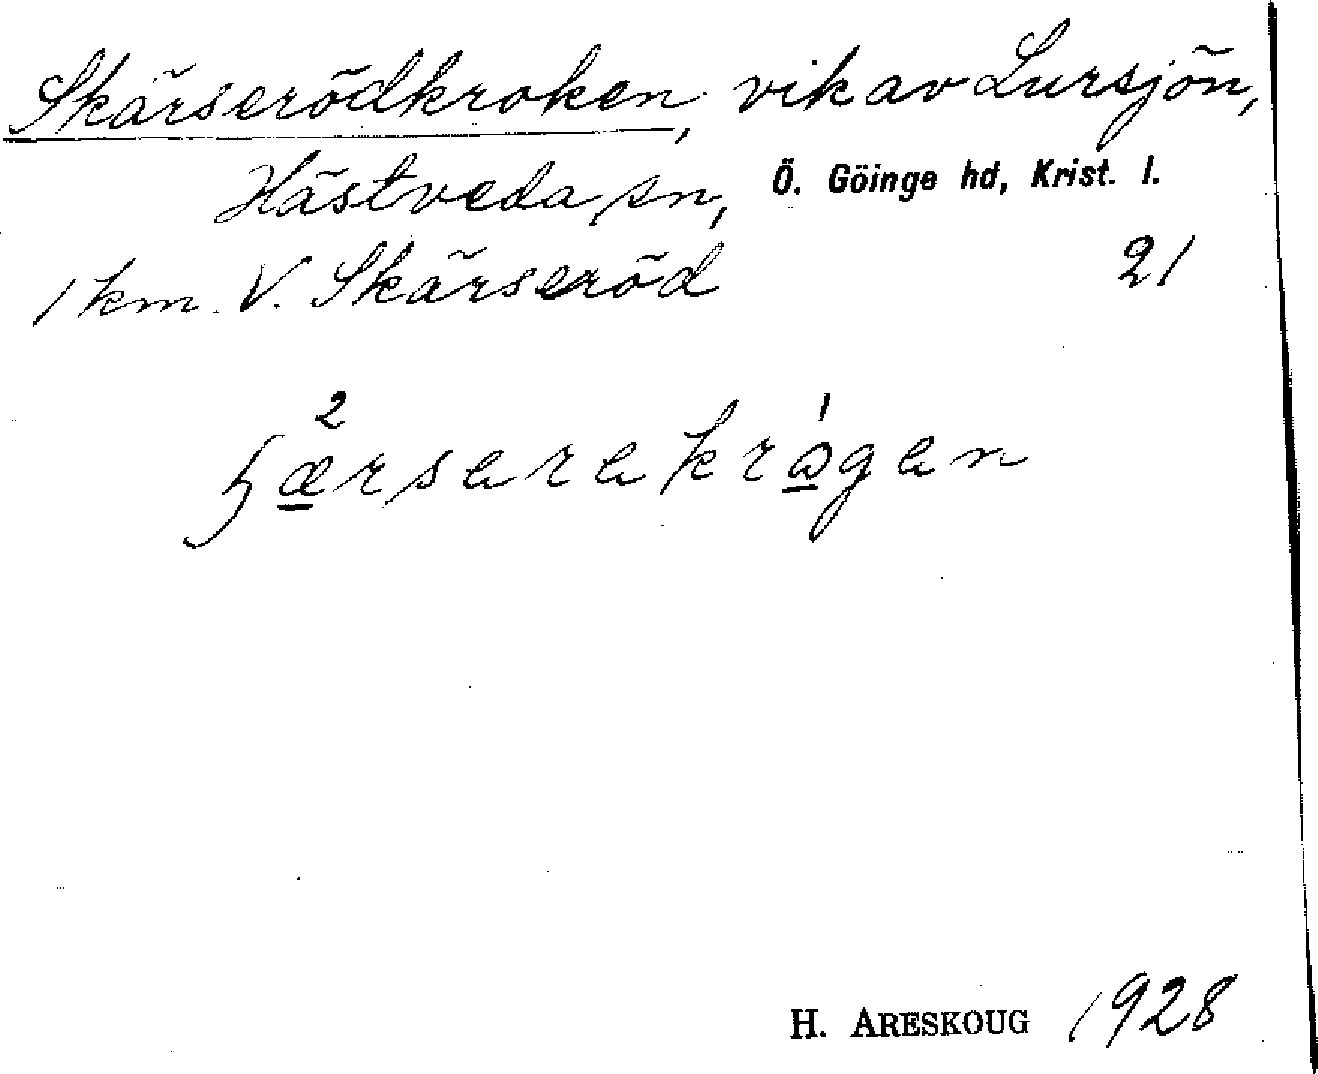 Skärserödkroken, vik av Lursjön,
Hästveda sn, Ö. Göinge hd, Krist. l.
1 km. V. Skärseröd 21
H. ARESKOUG 1928